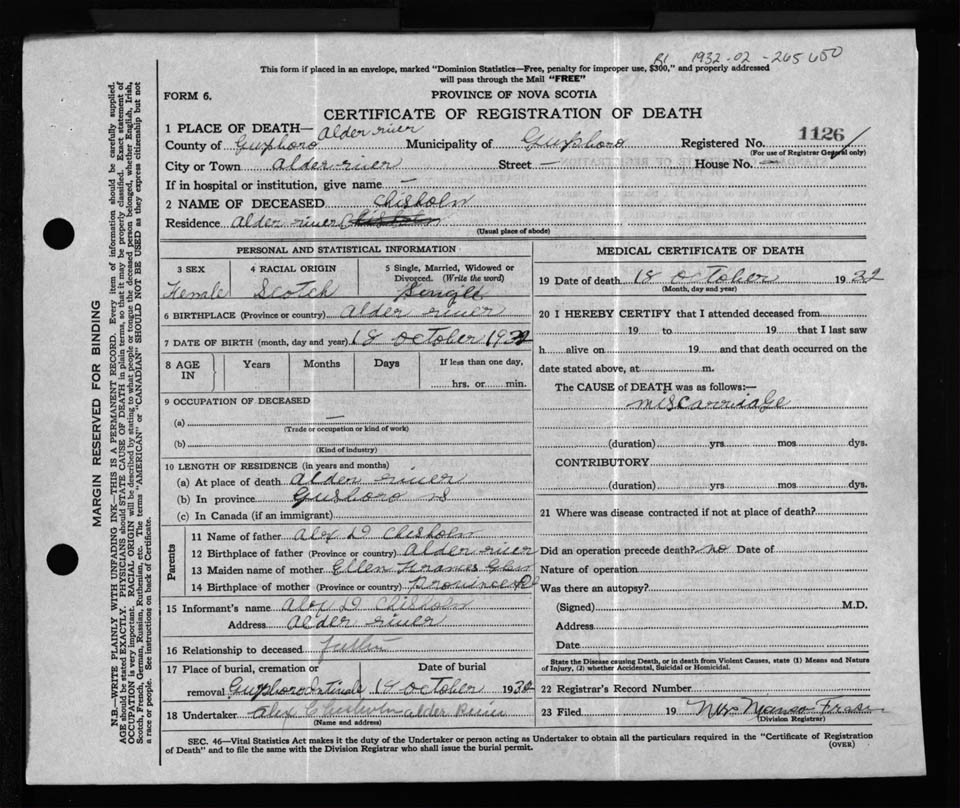 B1 1932-02-265650
This form if placed in an envelope, marked "Dominion Statistics—Free, penalty for improper use, $300," and properly addressed
will pass through the Mail "FREE"
FORM 6.
PROVINCE OF NOVA SCOTIA
CERTIFICATE OF REGISTRATION OF DEATH
1 PLACE OF DEATH— Alder river
County of Guysboro Municipality of Guysboro Registered No. 1126
(For use of Registrar General only)
City or Town Alder-river Street — House No. —
If in hospital or institution, give name —
2 NAME OF DECEASED Chisholm
Residence Alder river Chisholm
(Usual place of abode)
PERSONAL AND STATISTICAL INFORMATION
3 SEX 4 RACIAL ORIGIN 5 Single, Married, Widowed or
Divorced. (Write the word)
Female Scotch Single
6 BIRTHPLACE (Province or country) Alder river
7 DATE OF BIRTH (month, day and year) 18 October 1932
8 AGE IN Years Months Days If less than one day,
hrs. or min.
9 OCCUPATION OF DECEASED
(a) —
(Trade or occupation or kind of work)
(b)
(Kind of industry)
10 LENGTH OF RESIDENCE (in years and months)
(a) At place of death Alder river
(b) In province Gusboro NS
(c) In Canada (if an immigrant)
Parents
11 Name of father Alex D Chisholm
12 Birthplace of father (Province or country) Alder river
13 Maiden name of mother Ellen
14 Birthplace of mother (Province or country)
15 Informant's name Alex D Chisholm
Address Alder river
16 Relationship to deceased Father
17 Place of burial, cremation or Date of burial
removal Guysboro Intervale 18 October 1932
18 Undertaker Alex Chisholm alder River
(Name and address)
MEDICAL CERTIFICATE OF DEATH
19 Date of death 18 October 1932
(Month, day and year)
20 I HEREBY CERTIFY that I attended deceased from
19 to 19 that I last saw
h alive on 19 and that death occurred on the
date stated above, at m.
The CAUSE of DEATH was as follows:—
miscarriage
(duration) yrs. mos. dys.
CONTRIBUTORY
(duration) yrs. mos. dys.
21 Where was disease contracted if not at place of death?
Did an operation precede death? no Date of
Nature of operation
Was there an autopsy?
(Signed) M.D.
Address
Date
State the Disease causing Death, or in death from Violent Causes, state (1) Means and Nature
of Injury, (2) whether Accidental, Suicidal or Homicidal.
22 Registrar's Record Number
23 Filed 19
(Division Registrar)
SEC. 46—Vital Statistics Act makes it the duty of the Undertaker or person acting as Undertaker to obtain all the particulars required in the "Certificate of Registration
of Death" and to file the same with the Division Registrar who shall issue the burial permit.
(OVER)
MARGIN RESERVED FOR BINDING
N.B.—WRITE PLAINLY WITH UNFADING INK—THIS IS A PERMANENT RECORD. Every item of information should be carefully supplied.
AGE should be stated EXACTLY. PHYSICIANS should STATE CAUSE OF DEATH in plain terms, so that it may be properly classified. Exact statement of
OCCUPATION is very important. RACIAL ORIGIN will be described by stating to what people or tongue the deceased person belonged, whether English, Irish,
Scotch, French, German, Russian, Ruthenian, etc. The terms "AMERICAN" or "CANADIAN" SHOULD NOT BE USED as they express citizenship but not
a race or people. See instructions on back of Certificate.